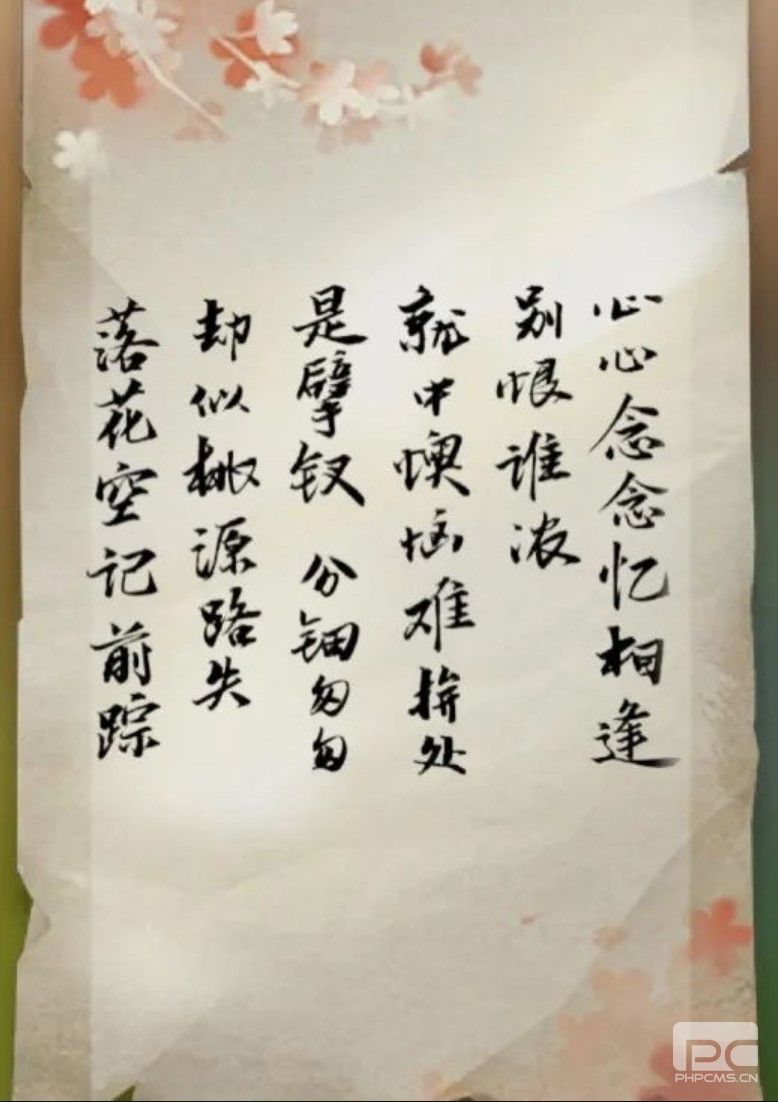 心心念念忆相逢
别恨谁浓
就中懊恼难拚处
是擘钗 分钿匆匆
却似桃源路失
落花空记前踪
PC
PHPCMS.CN